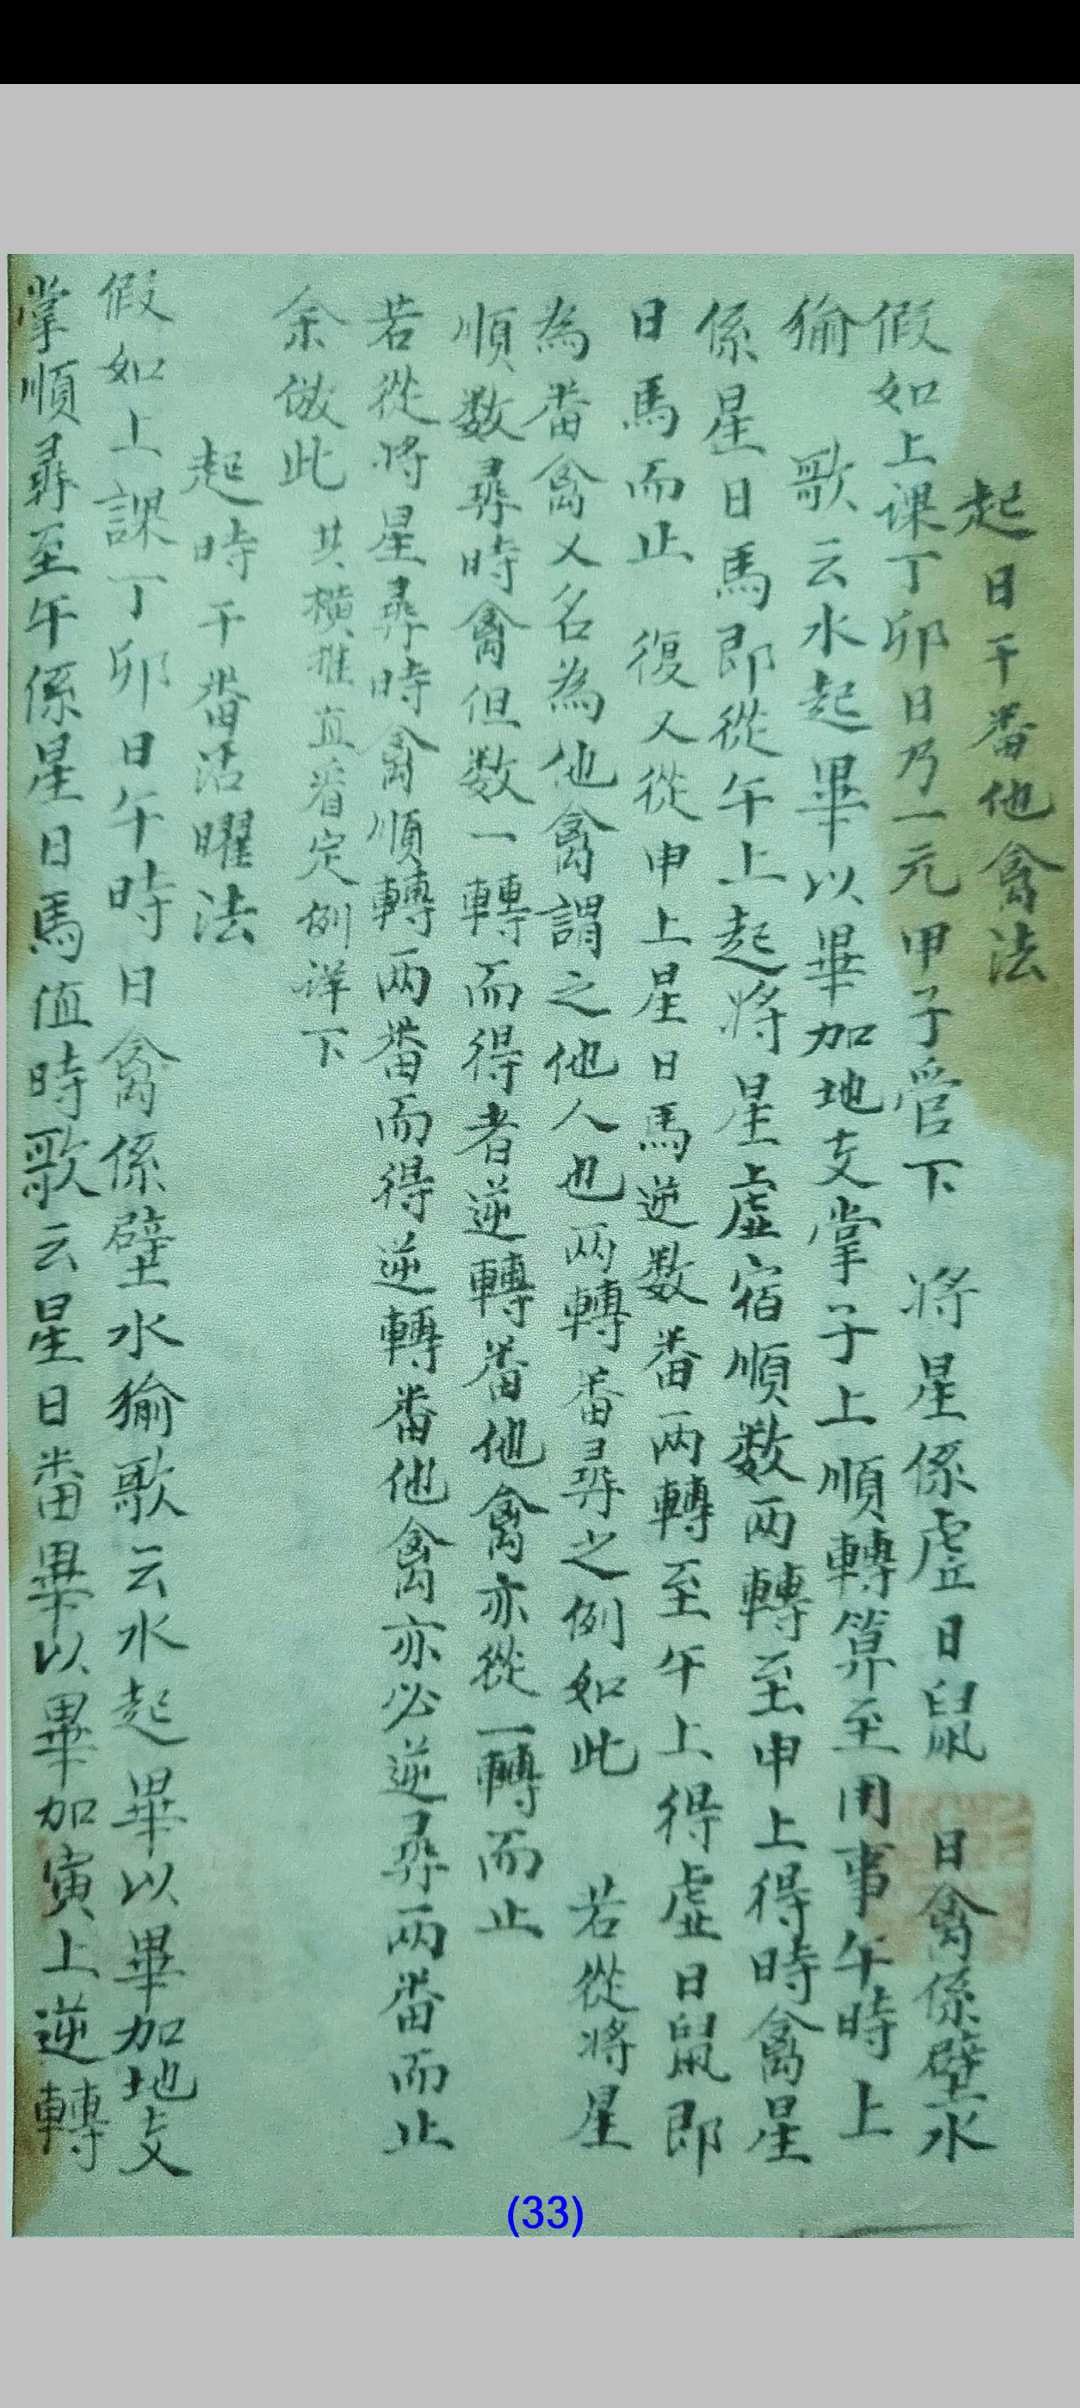 起日干番他禽法
假如上课丁卯日乃一元甲子管下　將星係虛日鼠　日禽係壁水
貐　歌云水起畢以畢加地支掌子上順轉算至用事午時上
係星日馬即從午上起將星虛宿順数两轉至申上得時禽星
日馬而止　復又從申上星日馬逆数番两轉至午上得虛日鼠即
為番禽又名為他禽謂之他人也两轉番尋之例如此　若從將星
順数尋時禽但数一轉而得者逆轉番他禽亦從一轉而止
若從將星尋時禽順轉两番而得逆轉番他禽亦必逆尋两番而止
余倣此　其横推直看定例详下
起時干番活曜法
假如上課丁卯日午時日禽係壁水貐歌云水起畢以畢加地支
掌順尋至午係星日馬值時歌云星日番畢以畢加寅上逆轉
(33)